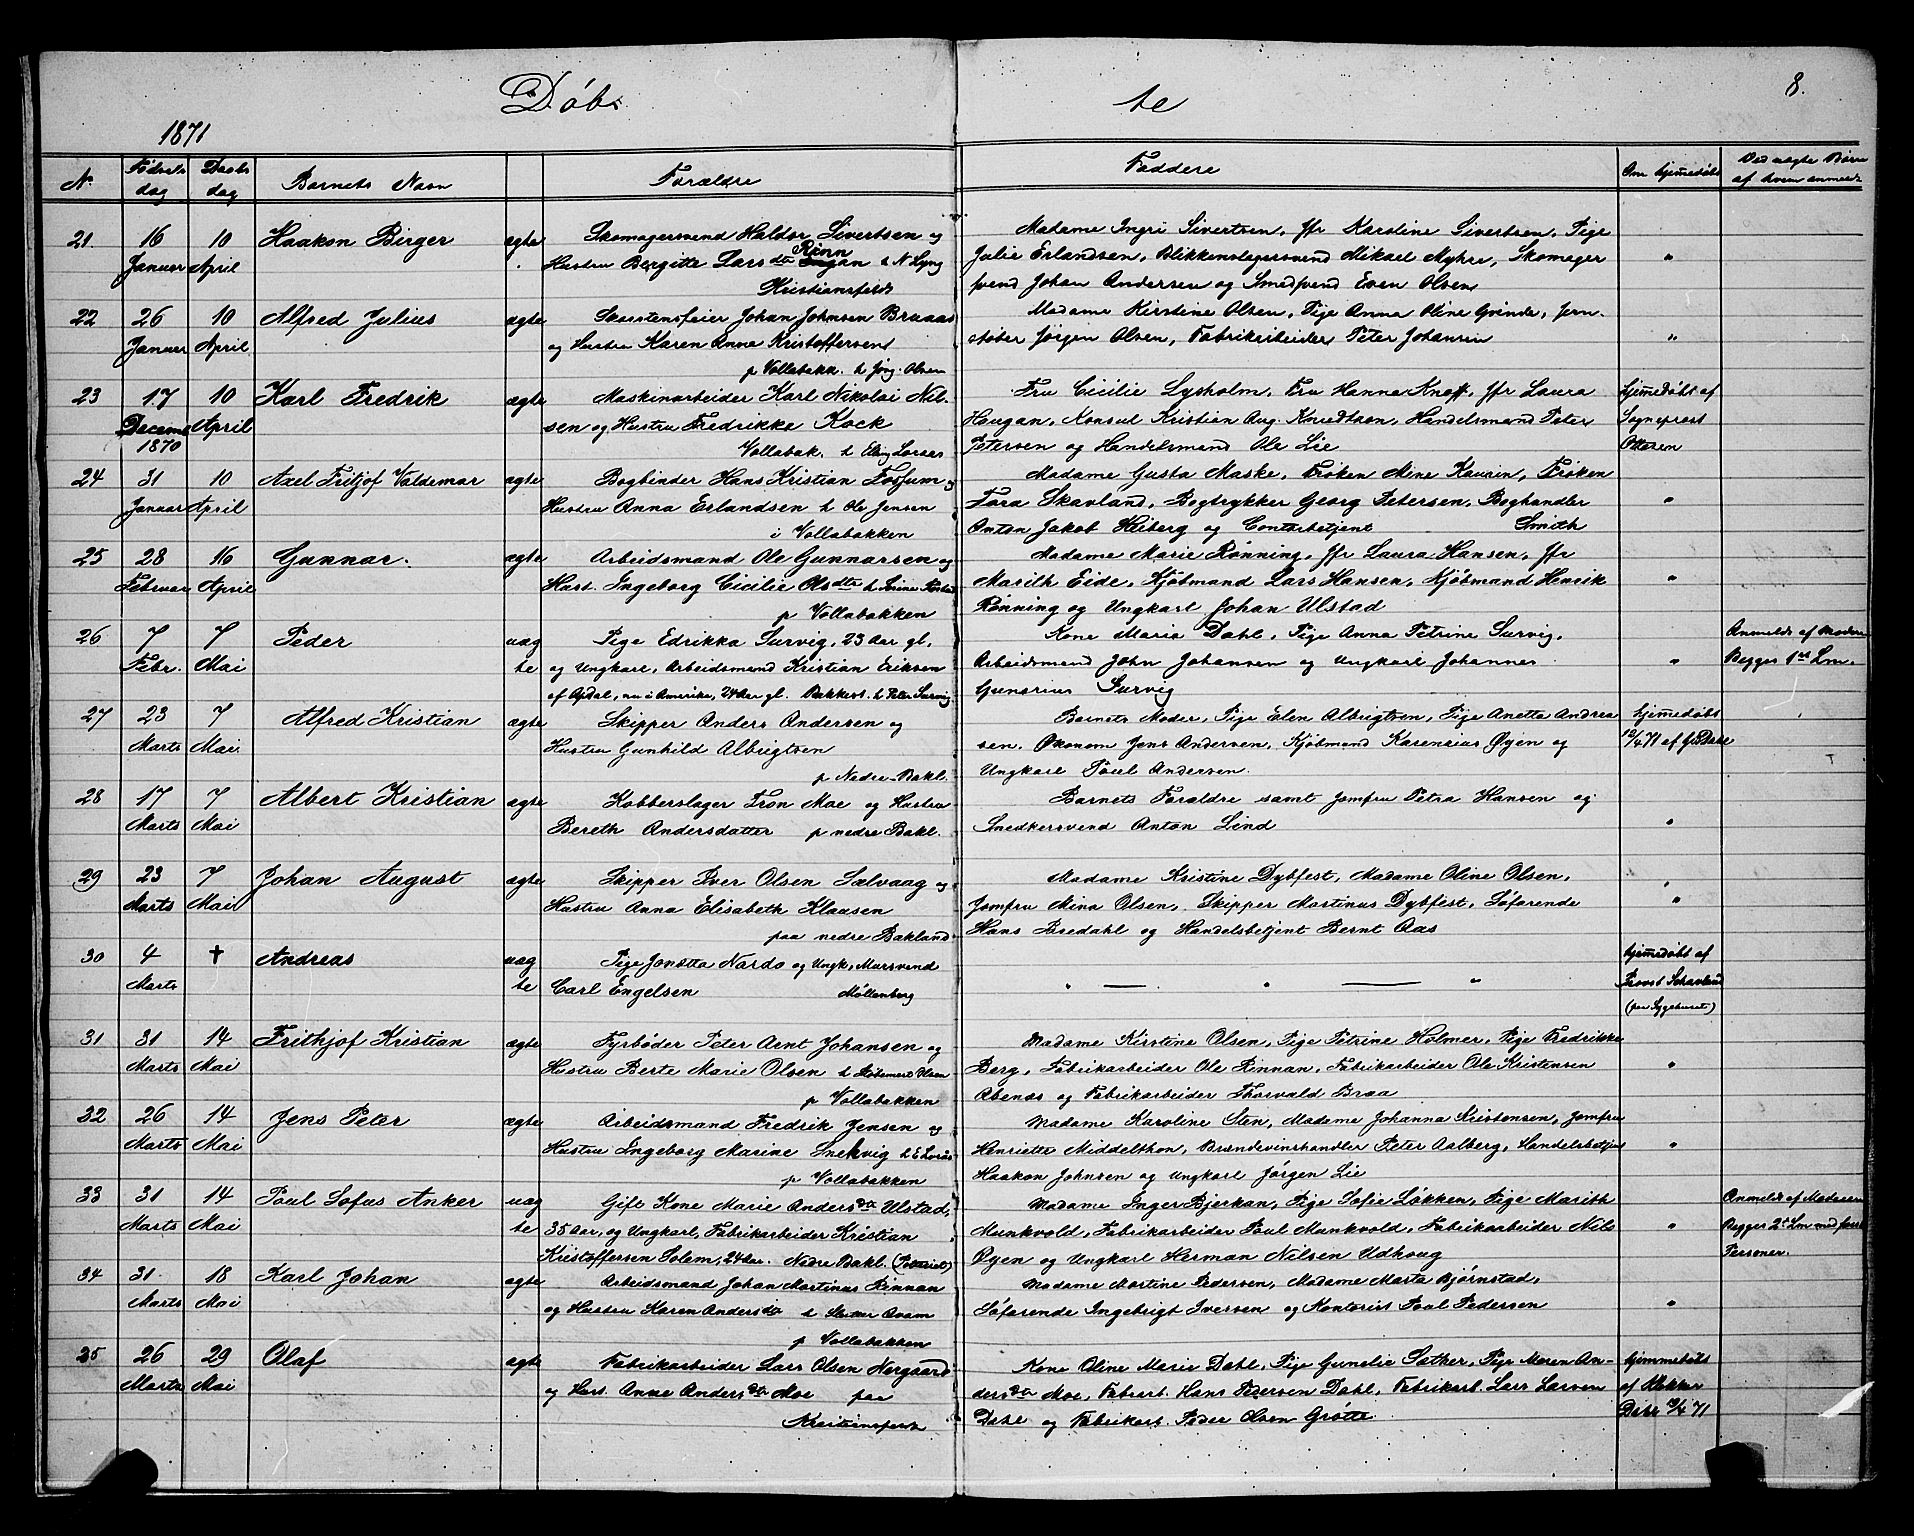 Døbte
8.
1871
No. Fødsels dag Daabs dag Barnets Navn Forældre Faddere Om hjemmedøbt Ved uægte Børn af hvem anmeldt
21 16 Januar 10 April Haakon Birger ægte Skomagersvend Haldor Sivertsen og
Hustru Bergitte Larsdtr Rønn t. N. Lyng
Kristiansfeldt
Madame Ingri Sivertsen, Jfr Karoline Sivertsen, Pige
Julie Erlandsen, Blikkenslagersvend Mikael Myhre, Skomager
svend Johan Andersen og Smedsvend Even Olsen "
22 26 Januar 10 April Alfred Julius ægte Skorstensfeier Johan Johnsen Bruaas
og Hustru Karen Anna Kristoffersen
p Vollabakk. t Jørg. Olsen
Madame Kirstine Olsen, Pige Anna Oline Grinde, Jern
støber Jørgen Olsen, Fabrikarbeider Peter Johansen "
23 17 Decemb 1870 10 April Karl Fredrik ægte Maskinarbeider Karl Nikolai Nil-
sen og Hustru Fredrikke Kock
Vollabak. t Eling Lorses
Fru Cicilie Lysholm, Fru Hanna Kneff, Jfr Laura
Haugan, Konsul Kristian Aug. Knudtson, Handelsmand Peter
Petersen og Handelsmand Ole Lie
hjemmedøbt af
Sogneprest
Ottesen
24 31 Januar 10 April Axel Fritjof Valdemar ægte Bogbinder Hans Kristian Fosfum og
Hustru Anna Erlandsen t Ole Jensen
i Vollabakken
Madame Gusta Maske, Frøken Mine Kaurin, Frøken
Fara Skavland, Bogtrykker Georg Petersen, Boghandler
Anton Jakob Heiberg og Contorbetjent Smith "
25 28 Februar 16 April Gunnar. ægte Arbeidsmand Ole Gunnarsen og
Hust. Ingeborg Cicilie Olsdtr t
p Vollabakken
Madame Marie Rønning, Jfr Laura Hansen, Jfr
Marith Eide, Kjøbmand Lars Hansen, Kjøbmand Henrik
Rønning og Ungkarl Johan Ulstad "
26 7 Febr. 7 Mai Peder uægte Pige Edrikka Survig, 23 Aar gl.
og Ungkarl, Arbeidsmand Kristian Eriksen
af Opdal, nu i Amerika, 24 Aar gl. Bakkers. t Peter Survig
Kone Maria Dahl, Pige Anna Petrine Survig,
Arbeidsmand John Johansen og Ungkarl Johannes
Gunerius Survig "
Anmeldt af Moderen
Begges 1ste Lm.
27 23 Marts 7 Mai Alfred Kristian ægte Skipper Anders Andersen og
Hustru Gunhild Albrigtsen
p Nedre-Bakl.
Barnets Moder, Pige Elen Albrigtsen, Pige Anetta Andrea
sen, Økonom Jens Andersen, Kjøbmand Karenius Øyen og
Ungkarl Poul Andersen.
hjemmedøbt
12/4 71 af
28 17 Marts 7 Mai Albert Kristian ægte Kobberslager Tron Moe og Hustru
Bereth Andersdatter p nedre Bakl.
Barnets Forældre samt Jomfru Petra Hansen og
Snedkersvend Anton Lind "
29 23 Marts 7 Mai Johan August ægte Skipper Iver Olsen Sælvaag og
Hustru Anna Elisabeth Klausen
paa nedre Bakland
Madame Kristine Dybfest, Madame Oline Olsen,
Jomfru Mina Olsen, Skipper Martinus Dybfest, Søfarende
Hans Bredahl og Handelsbetjent Bernt Aas "
30 4 Marts † Andreas uægte Pige Jonetta Nardo og Ungk. Mursvend
Carl Engelsen Møllenberg
" — " — "
hjemmedøbt af
Provst Schavland
(paa Sygehuset)
31 31 Marts 14 Mai Frithjof Kristian ægte Fyrbøder Peter Arnt Johansen og
Hustru Berte Marie Olsen t Olsen
p Vollabakken
Madame Kirstine Olsen, Pige Petrine Holmer, Pige Fredrikke
Berg, Fabrikarbeider Ole Rinnan, Fabrikarbeider Ole Kristensen
Abenas og Fabrikarbeider Thorvald Braa "
32 26 Marts 14 Mai Jens Peter ægte Arbeidsmand Fredrik Jensen og
Hustru Ingeborg Marine Snekvig t E. Lorås
p Vollabakken
Madame Karoline Sten, Madame Johanna Kristensen, Jomfru
Henriette Middelthon, Brændevinshandler Peter Aalberg, Handelsbetjent
Haakon Johnsen og Ungkarl Jørgen Lie "
33 31 Marts 14 Mai Poul Sofus Anker uægte Gift Kone Marie Andersdtr Ulstad,
35 Aar, og Ungkarl, Fabrikarbeider Kristian
Kristoffersen Solem, 24 Aar. Nedre Bakl.
Madame Inger Bjerkan, Pige Sofie Løkken, Pige Marith
Munkvold, Fabrikarbeider Poul Munkvold, Fabrikarbeider Nils
Øyen og Ungkarl Herman Nilsen Udhoug "
Anmeldt af Moderen
Begges 2det Lm med forsk
Personer.
34 31. Marts 18 Mai Karl Johan ægte Arbeidsmand Johan Martinus Rinnan
og Hustru Karen Andersdtr t Qvam
p Vollabakken
Madame Martine Pedersen, Madame Marta Bjørnstad,
Søfarende Ingebrigt Iversen og Kontorist Poul Pedersen "
35 26 Marts 29 Mai Olaf ægte Fabrikarbeider Lars Olsen Nergaard
og Hus. Anne Andersdtr Moe paa
Kristiansfeldt
Kone Oline Marie Dahl, Pige Gunelie Sæther, Pige Maren An-
dersdtr Moe, Fabrarb. Hans Pedersen Dahl, Fabrikarb. Lars Larsen
Dahl og Fabrikarb. Peder Olsen Grøtte
hjemmedøbt
af Klokker
Dahl 9/4 71